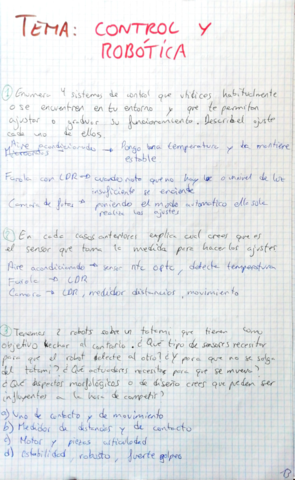 TEMA: CONTROL Y
ROBÓTICA
① Enumera 4 sistemas de control que utilices habitualmente
o se encuentren en tu entorno y que te permitan
ajustar o graduar su funcionamiento. Describe el ajuste
cada uno de ellos.
Aire acondicionado → Pongo una temperatura y la mantiene
estable
Farola con LDR → cuando nota que no hay luz o un nivel de luz
insuficiente se enciende
Camara de fotos → poniendo el modo automatico ella sola
realiza los ajustes
② En cada casos anteriores explica cual crees que es
el sensor que toma la medida para hacer los ajustes
Aire acondicionado → sensor NTC o PTC, detecta temperatura
Farola → LDR
Camara → LDR, medidor distancias, movimiento
③ Tenemos 2 robots sobre un tatami que tienen como
objetivo echar al contrario. ¿Qué tipo de sensores necesitas
para que el robot detecte al otro? ¿Y para que no se salga
del tatami? ¿Qué actuadores necesitas para que se mueva?
¿Qué aspectos morfológicos o de diseño crees que pueden ser
influyentes a la hora de competir?
a) Uno de contacto y de movimiento
b) Medidor de distancias y de contacto
c) Motor y piezas articuladas
d) Estabilidad, robusto, fuerte golpeo